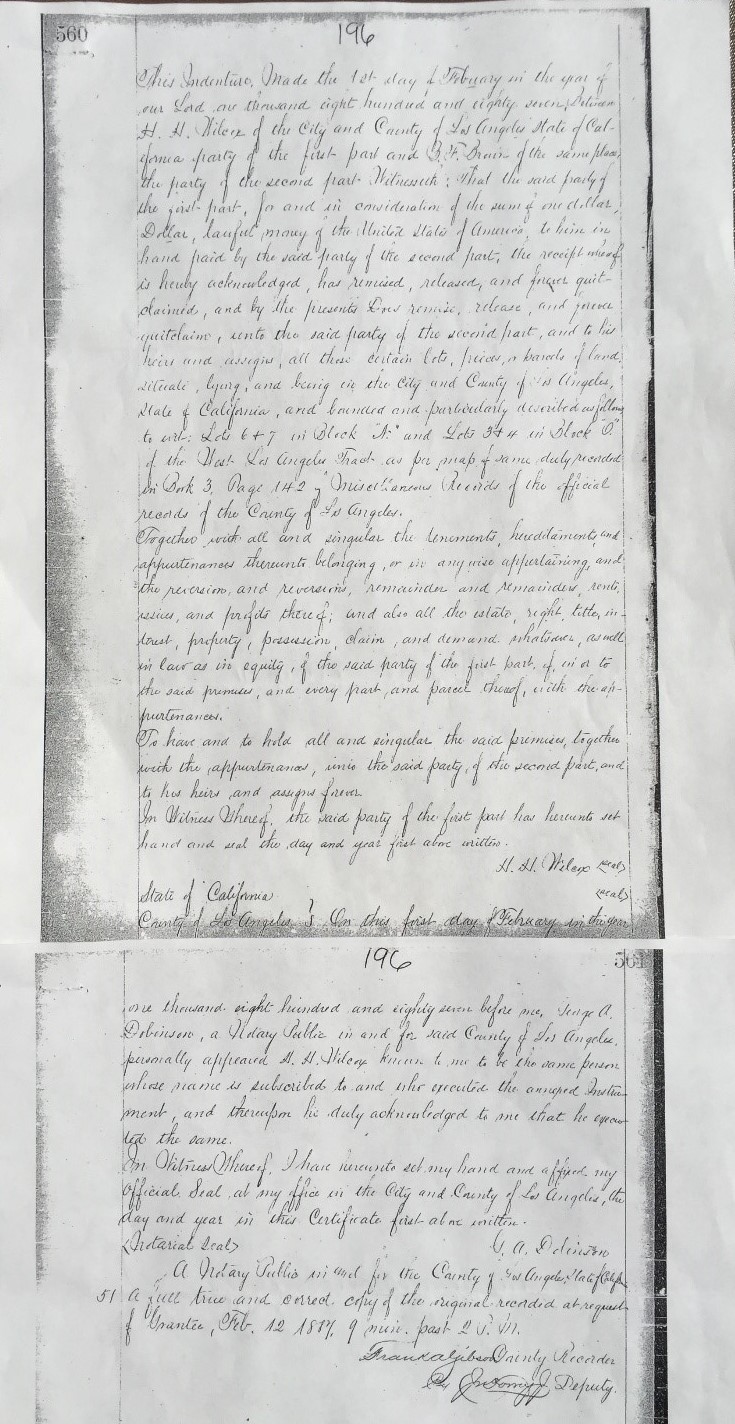 560
196
This Indenture, Made the 1st day of February in the year of
our Lord one thousand eight hundred and eighty seven, Between
H. H. Wilcox of the City and County of Los Angeles State of Cal-
ifornia party of the first part and B. F. of the same place,
the party of the second part Witnesseth: That the said party of
the first part, for and in consideration of the sum of one dollar,
Dollar, lawful money of the United States of America, to him in
hand paid by the said party of the second part, the receipt whereof
is hereby acknowledged, has remised, released, and forever quit-
claimed, and by the presents Does remise, release, and forever
quitclaim, unto the said party of the second part, and to his
heirs and assigns, all those certain lots, pieces, or parcels of land,
situate, lying, and being in the City and County of Los Angeles,
State of California, and bounded and particularly described as follows
to wit: Lots 6 + 7 in Block and Lots 3 + 4 in Block "O."
of the West Los Angeles Tract as per map of same duly recorded
in Book 3, Page 142 of Miscellaneous Records of the official
records of the County of Los Angeles.
Together with all and singular the tenements, hereditaments, and
appurtenances thereunto belonging, or in any wise appertaining, and
the reversion, and reversions, remainder and remainders, rents,
issues, and profits thereof; and also all the estate, right, title, in-
terest, property, possession, claim, and demand whatsoever, as well
in law as in equity, of the said party of the first part, of, in or to
the said premises, and every part, and parcel thereof, with the ap-
purtenances.
To have and to hold all and singular the said premises, together
with the appurtenances, unto the said party, of the second part, and
to his heirs and assigns forever.
In Witness Whereof, the said party of the first part has hereunto set
hand and seal the day and year first above written.
H. H. Wilcox (seal)
(seal)
State of California
County of Los Angeles } On this first day of February in the year
196
561
one thousand eight hundred and eighty seven before me, George A.
Dobinson, a Notary Public in and for said County of Los Angeles,
personally appeared H. H. Wilcox known to me to be the same person
whose name is subscribed to and who executed the annexed Instru-
ment, and thereupon he duly acknowledged to me that he execu-
ted the same.
In Witness Whereof, I have hereunto set my hand and affixed my
Official Seal at my office in the City and County of Los Angeles, the
day and year in this Certificate first above written.
(Notarial Seal) G. A. Dobinson
A Notary Public in and for the County of Los Angeles, State of Calif
51 A full true and correct copy of the original recorded at request
of Grantee, Feb. 12 1887, 9 min. past 2 P. M.
Frank A Gibson County Recorder
By Deputy.